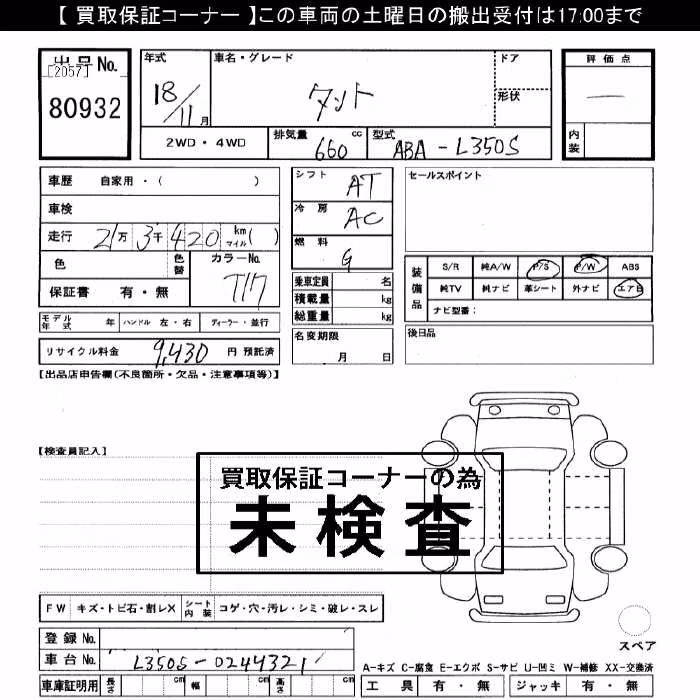 【 買取保証コーナー 】この車両の土曜日の搬出受付は17:00まで
出品 No.
[2057]
80932
年式
18/11月
車名・グレード
タント
ドア
形状
評価点
―
内装
2WD・4WD
排気量 660 cc
型式 ABA - L350S
車歴 自家用・( )
車検
走行 21万 3千 420 km マイル ( )
色
色替
カラーNo.
T17
保証書 有・無
シフト AT
冷房 AC
燃料 G
乗車定員 名
積載量 kg
総重量 kg
セールスポイント
装備品
S/R 純A/W P/S P/W ABS
純TV 純ナビ 革シート 外ナビ エアB
ナビ型番:
モデル年式 年 ハンドル 左・右 ディーラー・並行
名変期限
月 日
後日品
リサイクル料金 9,430 円 預託済
【出品店申告欄(不良箇所・欠品・注意事項等)】
【検査員記入】
買取保証コーナーの為
未検査
FW キズ・トビ石・割レX シート内装 コゲ・穴・汚レ・シミ・破レ・スレ
スペア
登録 No.
車台 No. L350S-0244321
A-キズ C-腐食 E-エクボ S-サビ U-凹ミ W-補修 XX-交換済
車庫証明用 長さ cm 幅 cm 高さ cm
工具 有・無 ジャッキ 有・無